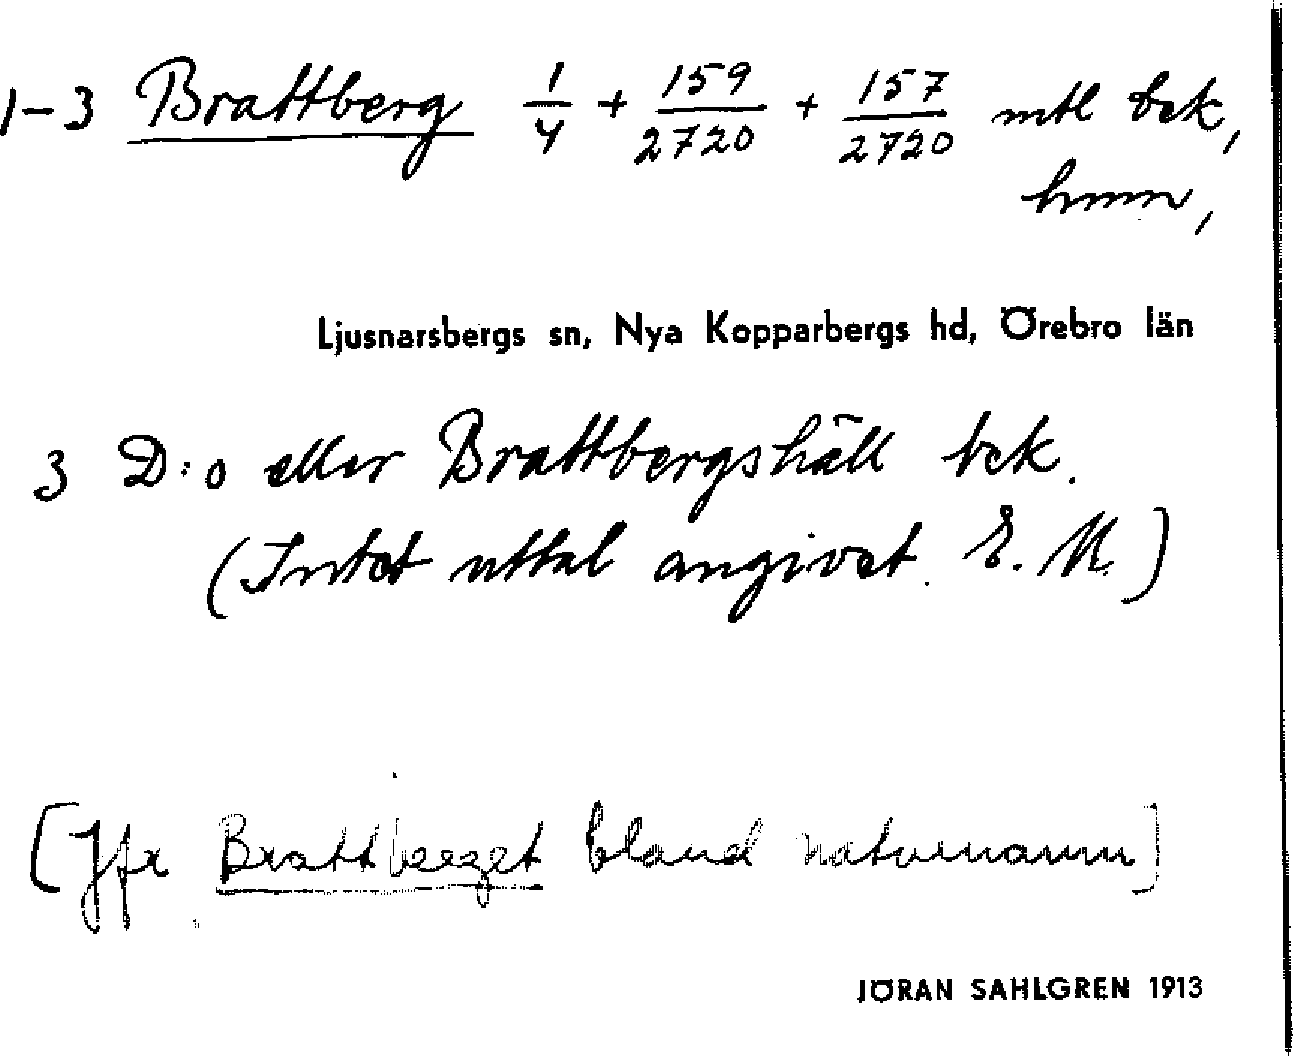 1-3 Brattberg 1/4 + 159/2720 + 157/2720 mtl bek,
hmn,
Ljusnarsbergs sn, Nya Kopparbergs hd, Örebro län
3 D:o eller Brattbergshäll bek.
(Intet uttal angivet. E. M.)
[Jfr Brattberget bland naturnamn]
JÖRAN SAHLGREN 1913